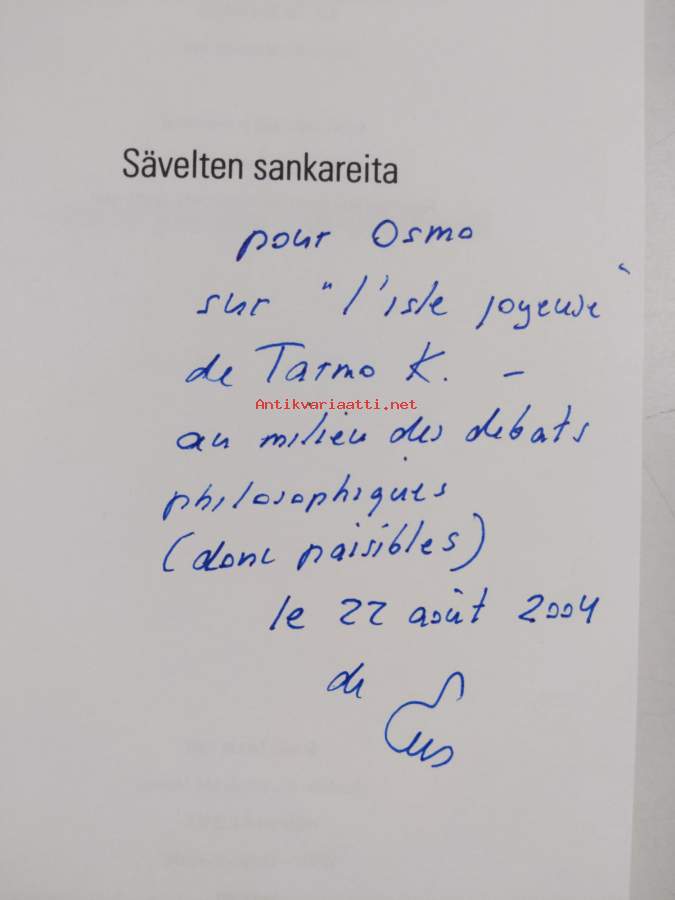 Sävelten sankareita
pour Osmo
sur "l'isle joyeuse"
de Tarmo K. -
Antikvariaatti.net
au milieu des debats
philosophiques
(donc paisibles)
le 22 août 2004
de